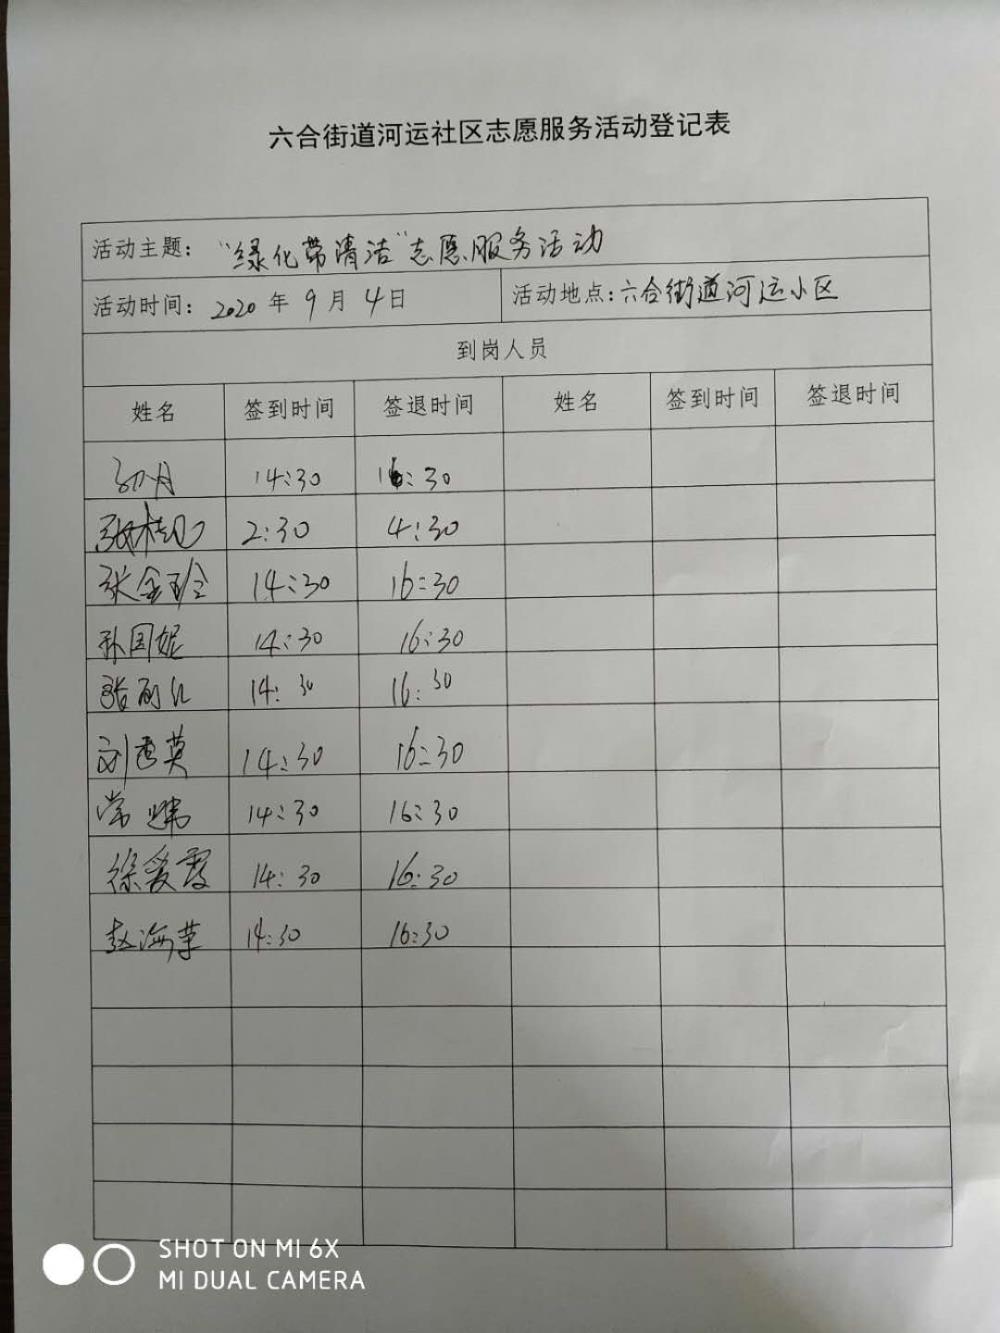 六合街道河运社区志愿服务活动登记表
活动主题：“绿化带清洁”志愿服务活动
活动时间：2020年9月4日 活动地点：六合街道河运小区
到岗人员
姓名 签到时间 签退时间 姓名 签到时间 签退时间
14:30 16:30
2:30 4:30
张金玲 14:30 16:30
孙国妮 14:30 16:30
14:30 16:30
14:30 16:30
14:30 16:30
徐爱霞 14:30 16:30
赵海荣 14:30 16:30
SHOT ON MI 6X
MI DUAL CAMERA